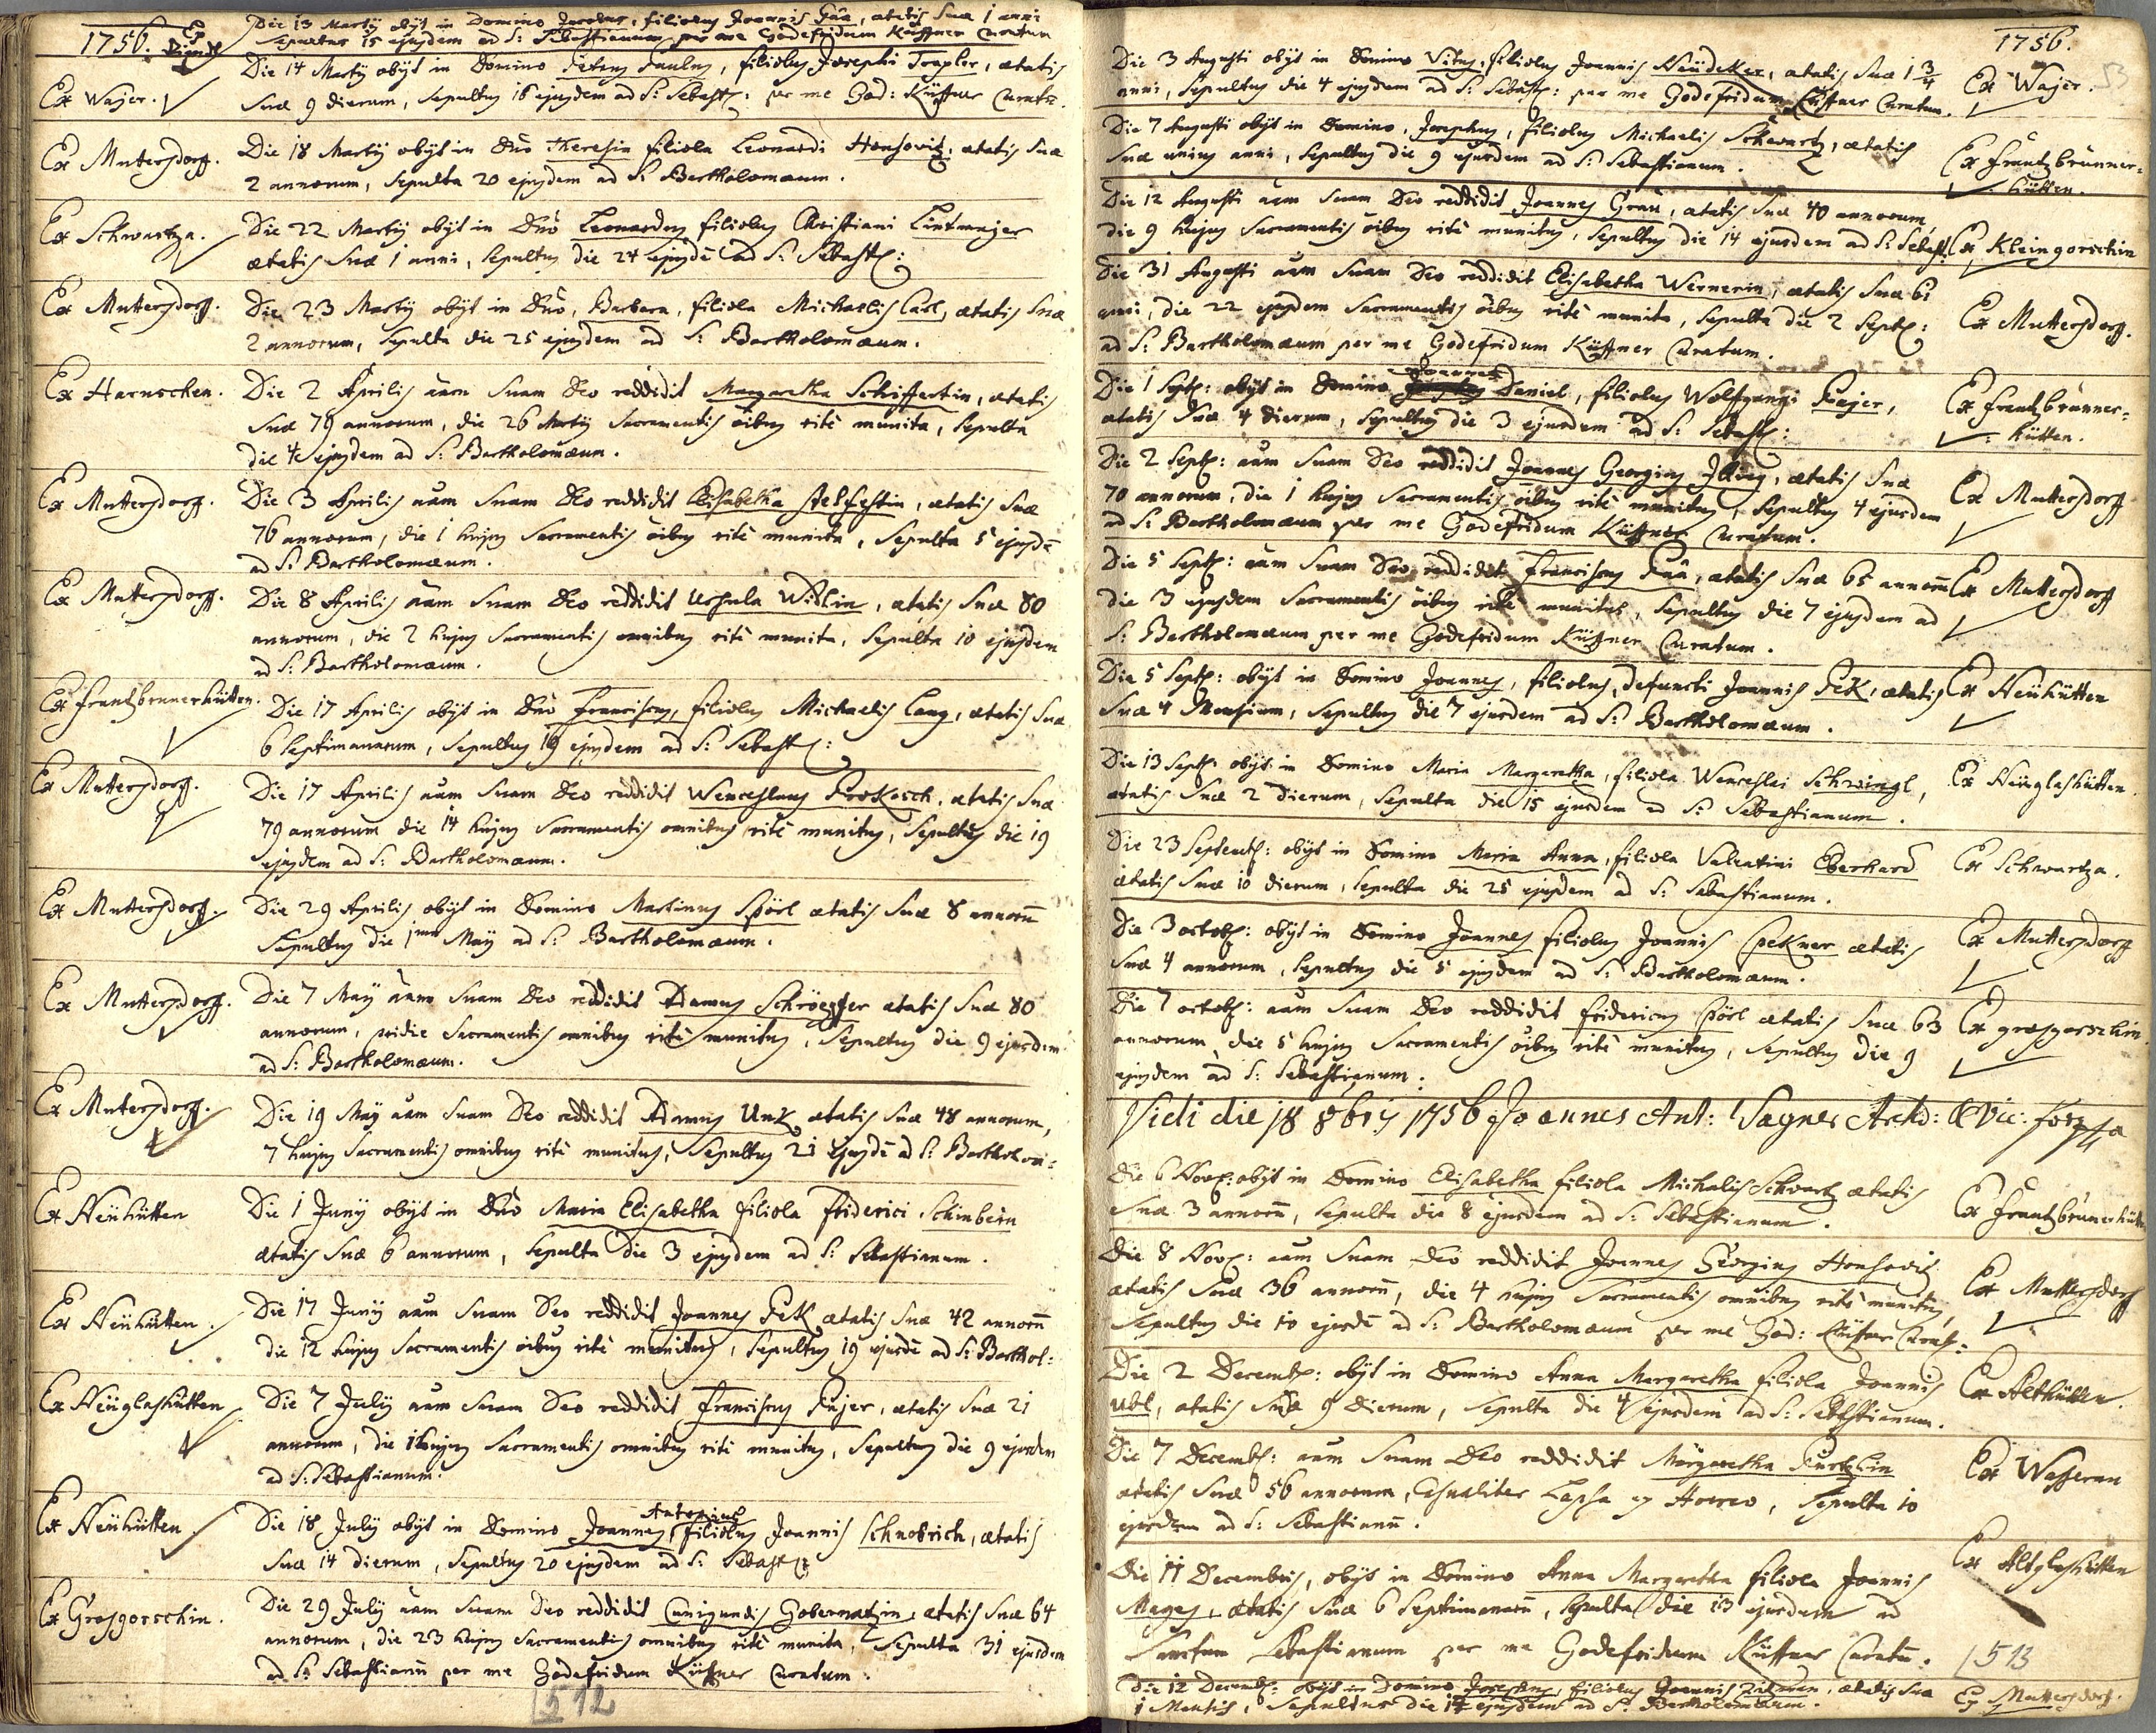 1756.
Die 13 Martij obijt in Domino Jacobus, filiolus Joannis Fää, ætatis suæ 1 anni
Sepultus 15 ejusdem ad S: Sebastianum per me Godefridum Küffner Curatum
Ex Wajer.
Die 14 Martij obijt in Domino Petrus Paulus, filiolus Josephi Trexler, ætatis
suæ 9 dierum, sepultus 16 ejusdem ad S: Sebast: per me God: Küffner Curatu.
Ex Muttersdorf.
Die 18 Martij obijt in Dno Theresia filiola Leonardi Honsowitz, ætatis suæ
2 annorum, sepulta 20 ejusdem ad S: Bartholomæum.
Ex Schwartza.
Die 22 Martij obijt in Dno Leonardus filiolus Christiani Lintmajer
ætatis suæ 1 anni, sepultus die 24 ejusdē ad S: Sebast:
Ex Muttersdorff.
Die 23 Martij obijt in Dno, Barbara, filiola Michaelis Carl, ætatis suæ
2 annorum, sepulta die 25 ejusdem ad S: Bartholomæum.
Ex Harnschen.
Die 2 Aprilis aām suam Deo reddidit Margaretha Schiffertin, ætatis
suæ 79 annorum, die 26 Martij Sacramentis oībus ritè munita, sepulta
die 4 ejusdem ad S: Bartholomæum.
Ex Muttersdorf.
Die 3 Aprilis aām suam Deo reddidit Elisabetha, ætatis suæ
76 annorum, die 1 hujus Sacramentis oībus ritè munita, sepulta 5 ejusdē
ad S: Bartholomæum.
Ex Muttersdorf.
Die 8 Aprilis aām suam Deo reddidit Ursula Wislin, ætatis suæ 80
annorum, die 2 hujus Sacramentis omnibus ritè munita, sepulta 10 ejusdem
ad S: Bartholomæum.
Ex Frantzbrunnerhütten.
Die 17 Aprilis obijt in Dno Franciscus, filiolus Michaelis Lang, ætatis suæ
6 septimanarum, sepultus 19 ejusdem ad S: Sebast:
Ex Muttersdorf.
Die 17 Aprilis aām suam Deo reddidit Wenceslaus Prokosch, ætatis suæ
79 annorum die 14 hujus Sacramentis omnibus ritè munitus, sepultus die 19
ejusdem ad S: Bartholomæum.
Ex Muttersdorf.
Die 29 Aprilis obijt in Domino Martinus Pörl ætatis suæ 8 annorū
sepultus die 1ma May ad S: Bartholomæum.
Ex Muttersdorf.
Die 7 May aām suam Deo reddidit Adamus Schröpfer ætatis suæ 80
annorum, pridie Sacramentis omnibus ritè munitus, sepultus die 9 ejusdem
ad S: Bartholomæum.
Ex Muttersdorf.
Die 19 May aām suam Deo reddidit Adamus Unk ætatis suæ 48 annorum,
7 hujus Sacramentis omnibus ritè munitus, sepultus 21 ejusdē ad S: Bartholom:
Ex Neuhütten
Die 1 Junij obijt in Dno Maria Elisabetha filiola Friderici Schinbein
ætatis suæ 6 annorum, sepulta die 3 ejusdem ad S: Sebastianum.
Ex Neuhütten.
Die 17 Junij aām suam Deo reddidit Joannes Pek ætatis suæ 42 annorū
die 12 hujus Sacramentis oībus ritè munitus, sepultus 19 ejusdē ad S: Barthol:
Ex Neuglashütten
Die 7 July aām suam Deo reddidit Franciscus Pajer, ætatis suæ 21
annorum, die hujus Sacramentis omnibus ritè munitus, sepultus die 9 ejusdem
ad S: Sebastianum.
Ex Neuhütten
Die 18 July obijt in Domino Joannes Antonius filiolus Joannis Schnobrich, ætatis
suæ 14 dierum, sepultus 20 ejusdem ad S: Sebast:
Ex Grosgorschin.
Die 29 July aām suam Deo reddidit Cunigundis Gobernatzin, ætatis suæ 64
annorum, die 23 hujus Sacramentis omnibus ritè munita, sepulta 31 ejusdem
ad S: Sebastianū per me Godefridum Küffner Curatum.
512
1756.
53
Die 3 Augusti obijt in Domino Vitus, filiolus Joannis Neüdeker, ætatis suæ 1 3/4
anni, sepultus die 4 ejusdem ad S: Sebast: per me Godefridum Küffner Curatum.
Ex Wajer.
Die 7 Augusti obijt in Domino, Josephus, filiolus Michaelis Schwartz, ætatis
suæ unius anni, sepultus die 9 ejusdem ad S: Sebastianum.
Ex Frantzbrunner=
hütten.
Die 12 Augusti aām suam Deo reddidit Joannes Grau, ætatis suæ 40 annorum,
die 9 hujus Sacramentis oībus ritè munitus, sepultus die 14 ejusdem ad S: Sebast.
Ex Kleingorschin
Die 31 Augusti aām suam Deo reddidit Elisabetha Wernerin, ætatis suæ 61
anni, die 22 ejusdem Sacramentis oībus ritè munita, sepulta die 2 Sept:
ad S: Bartholomæum per me Godefridum Küffner Curatum.
Ex Muttersdorf.
Die 1 Sept: obijt in Domino Joannes Daniel, filiolus Wolfgangi Pajer,
ætatis suæ 4 dierum, sepultus die 3 ejusdem ad S: Sebast:
Ex Frantzbrunner=
hütten.
Die 2 Sept: aām suam Deo reddidit Joannes Georgius, ætatis suæ
70 annorum, die 1 hujus Sacramentis oībus ritè munitus, sepultus 4 ejusdem
ad S: Bartholomæum per me Godefridum Küffner Curatum.
Ex Muttersdorf
Die 5 Sept: aām suam Deo reddidit Franciscus Fää, ætatis suæ 65 annorū
die 3 ejusdem Sacramentis oībus ritè munitus, sepultus die 7 ejusdem ad
S: Bartholomæum per me Godefridum Küffner Curatum.
Ex Muttersdorf
Die 5 Sept: obijt in Domino Joannes, filiolus defuncti Joannis Pek, ætatis
suæ 4 Mensium, sepultus die 7 ejusdem ad S: Bartholomæum.
Ex Neühütten
Die 13 Sept: obijt in Domino Maria Margaretha, filiola Wenceslai Schwingl,
ætatis suæ 2 dierum, sepulta die 15 ejusdem ad S: Sebastianum.
Ex Neuglashütten.
Die 23 Septemb: obijt in Domino Maria Anna, filiola Valentini Eberhard
ætatis suæ 10 dierum, sepulta die 25 ejusdem ad S: Sebastianum.
Ex Schwartza.
Die 3 octob: obijt in Domino Joannes filiolus Joannis Spekner ætatis
suæ 4 annorum, sepultus die 5 ejusdem ad S: Bartholomæum.
Ex Muttersdorf
Die 7 octob: aām suam Deo reddidit Fridericus Pörl ætatis suæ 63
annorum, die 5 hujus Sacramentis oībus ritè munitus, sepultus die 9
ejusdem ad S: Sebastianum.
Ex grosgorschin.
Vidi die 18 8bris 1756 Joannes Ant: Wagner Archid: & Vic: for:
Die 6 Nov: obijt in Domino Elisabetha filiola Michalis Schwartz ætatis
suæ 3 annorū, sepulta die 8 ejusdem ad S: Sebastianum.
Ex Frantzbrunerhütt
Die 8 Nov: aām suam Deo reddidit Joannes Georgius Honsowitz
ætatis suæ 36 annorū, die 4 hujus Sacramentis omnibus ritè munitus,
sepultus die 10 ejusdē ad S: Bartholomæum per me God: Küffner Curat:
Ex Muttersdorf
Die 2 Decemb: obijt in Domino Anna Margaretha filiola Joannis
Ubl, ætatis suæ 9 dierum, sepulta die 4 ejusdem ad S: Sebastianum.
Ex Althütten.
Die 7 Decemb: aām suam Deo reddidit Margaretha Kurtzhin
ætatis suæ 56 annorum, casualiter lapsa ex Horreo, sepulta 10
ejusdem ad S: Sebastianū.
Ex Wasserau
Die 11 Decembris, obijt in Domino Anna Margaretha filiola Joannis
Mages, ætatis suæ 6 septimanarū, sepulta die 13 ejusdem ad
Sanctum Sebastianum per me Godefridum Küffner Curatū.
Ex Altglashütten
513
Die 12 Decemb: obijt in Domino Josephus, filiolus Joannis, ætatis suæ
1 Mensis, Sepultus die 14 ejusdem ad S. Bartholomæum.
Ex Muttersdorf.